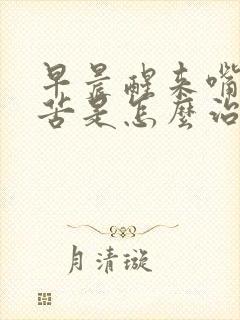 早晨醒来嘴
苦是怎麼治
月清璇